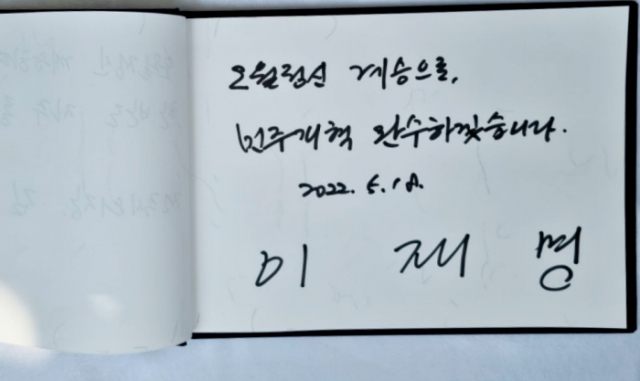 오월정신 계승으로,
민주개혁 완수하겠습니다.
2022. 5. 18.
이 재 명